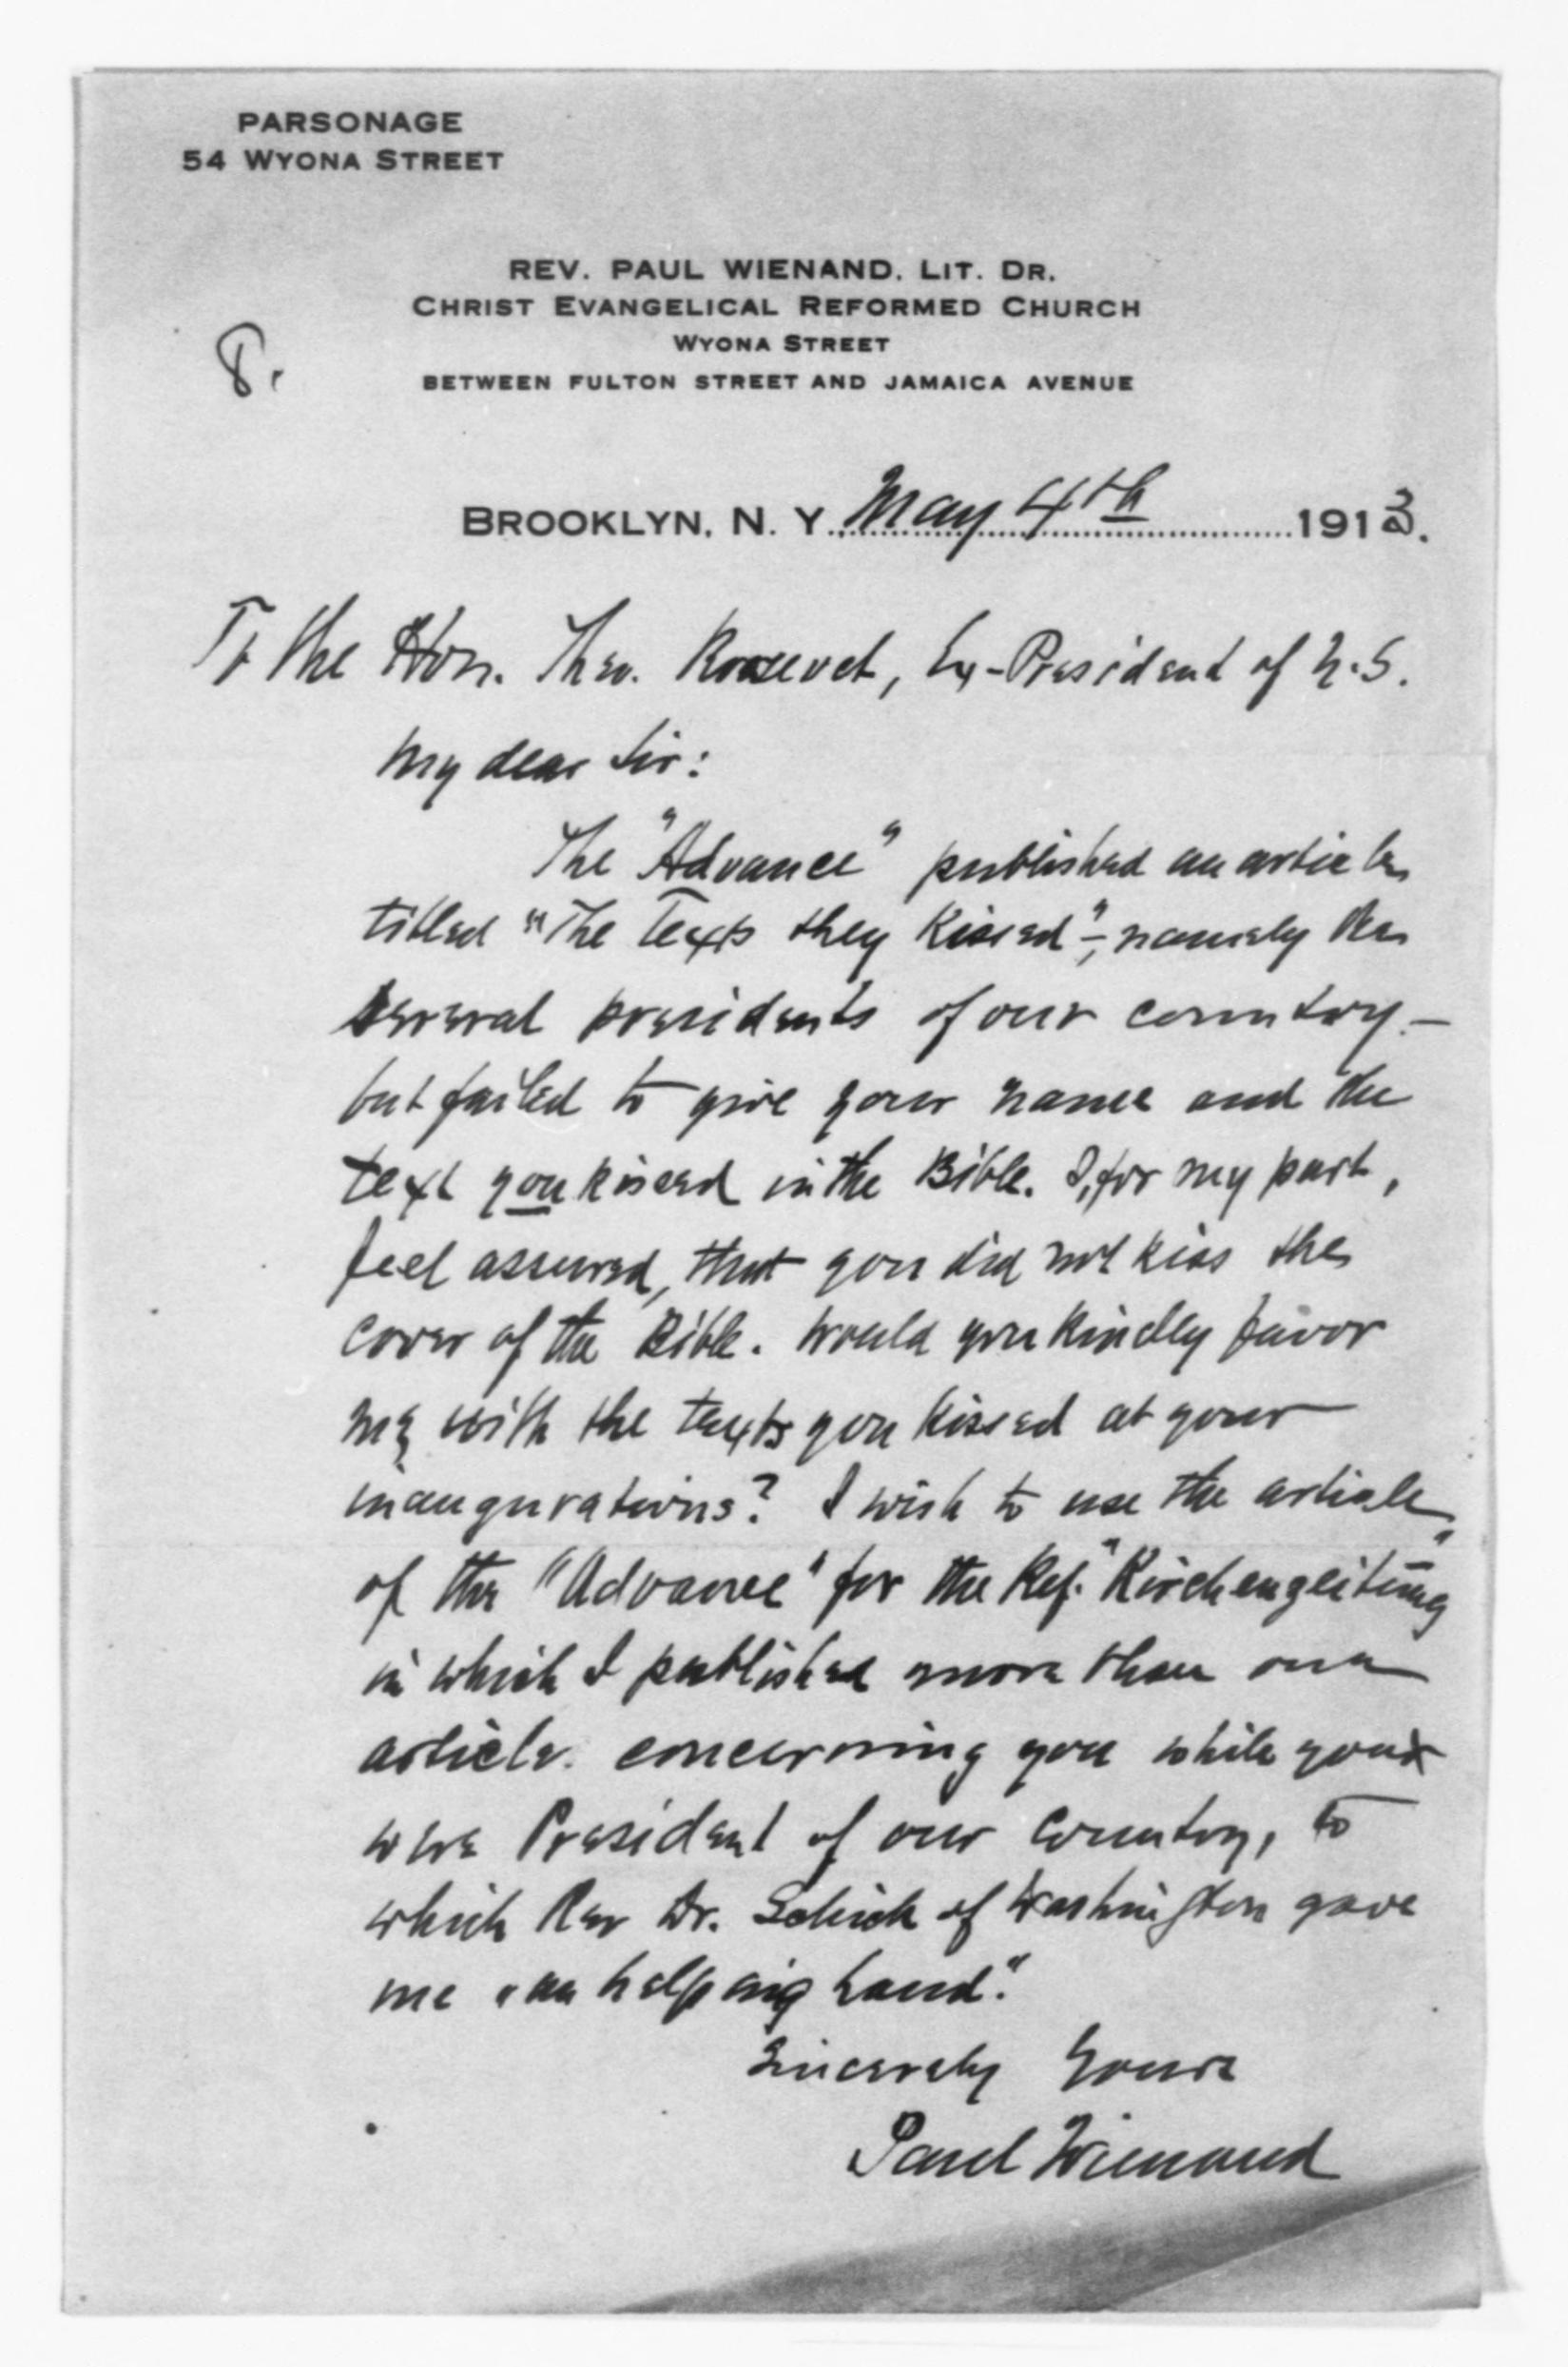 PARSONAGE
54 WYONA STREET
REV. PAUL WIENAND, LIT. DR.
CHRIST EVANGELICAL REFORMED CHURCH
WYONA STREET
BETWEEN FULTON STREET AND JAMAICA AVENUE
8.
BROOKLYN, N. Y. May 4th 1913.
To the Hon. Theo. Roosevet, Ex-President of U.S.
My dear Sir:
The "Advance" published an article
titled "The Texts they kissed",- namely the
several presidents of our country.-
but failed to give your name and the
text you kissed in the Bible. I, for my part,
feel assured, that you did not kiss the
cover of the Bible. Would you kindly favor
me with the texts you kissed at your
inaugurations? I wish to use the article
of the "Advance" for the Ref. "Kirchenzeitung"
in which I published more than one
article concerning you while you
were President of our country, to
which Rev Dr. Schick of Washington gave
me "an helping hand."
Sincerely Yours
Paul Wienand